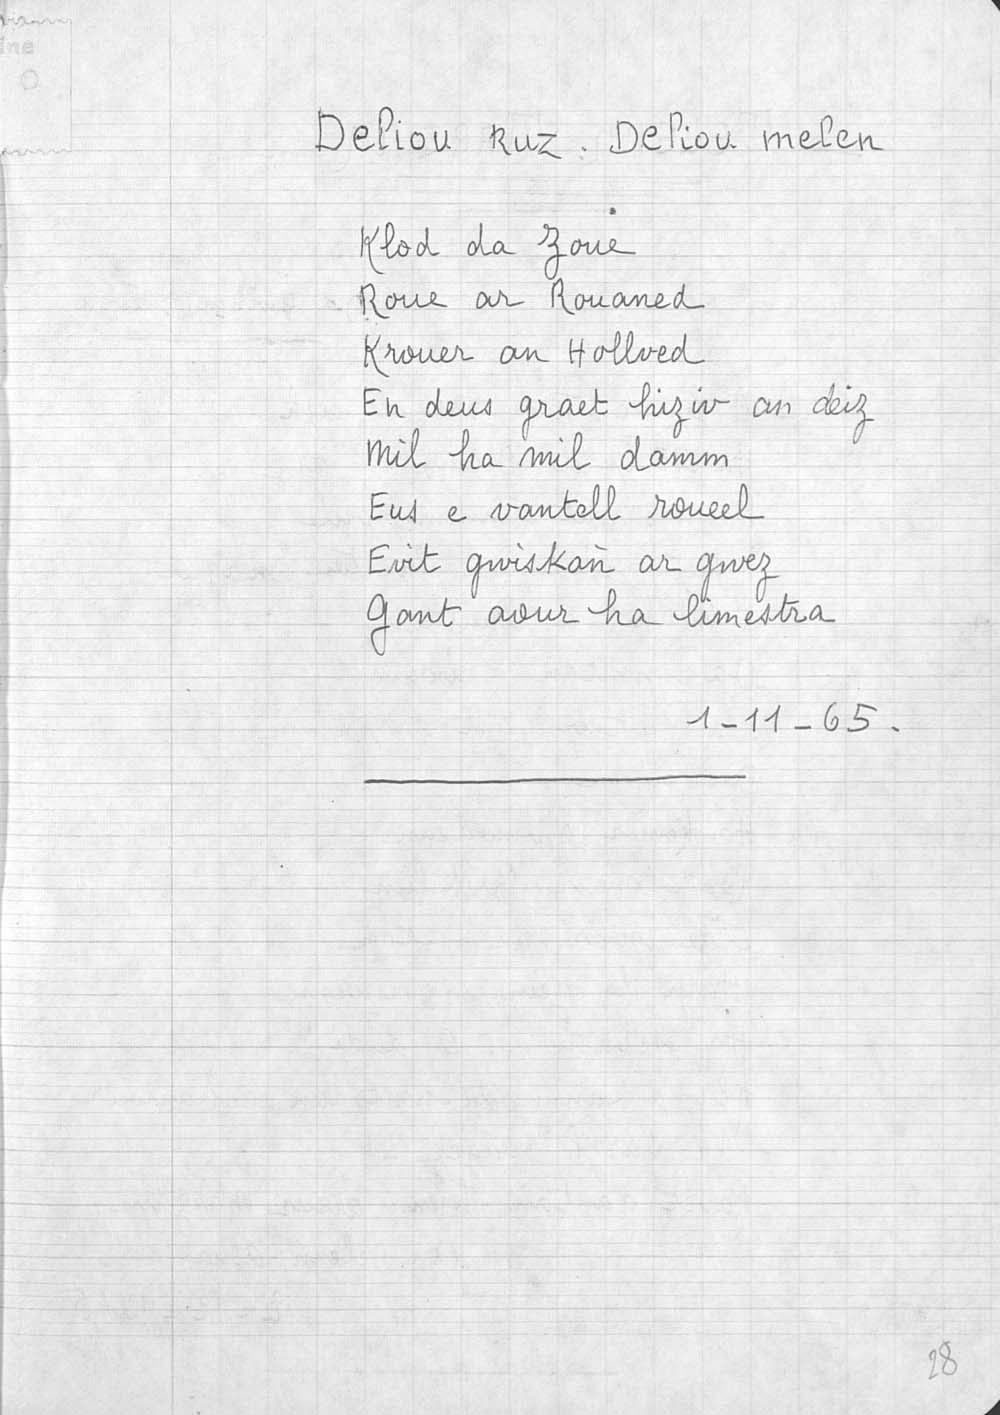 Deliou Ruz. Deliou melen
Klod da Zoue
Roue ar Rouaned
Krouer an Hollved
En deus graet hiziv an deiz
Mil ha mil damm
Eus e vantell roueel
Evit gwiskañ ar gwez
Gant aour ha limestra
1-11-65.
28